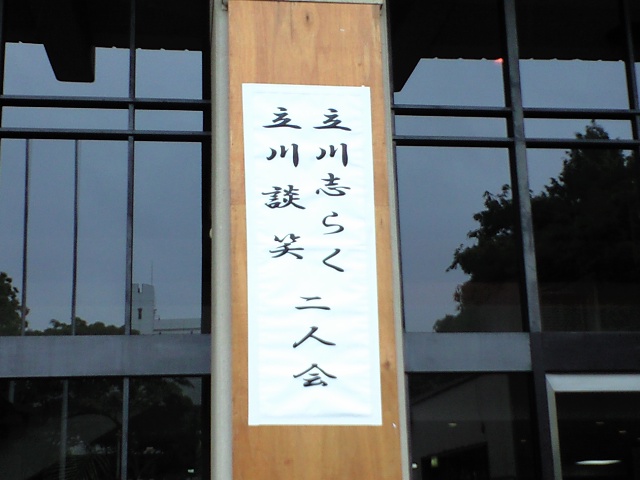 立川志らく
立川談笑
二人会